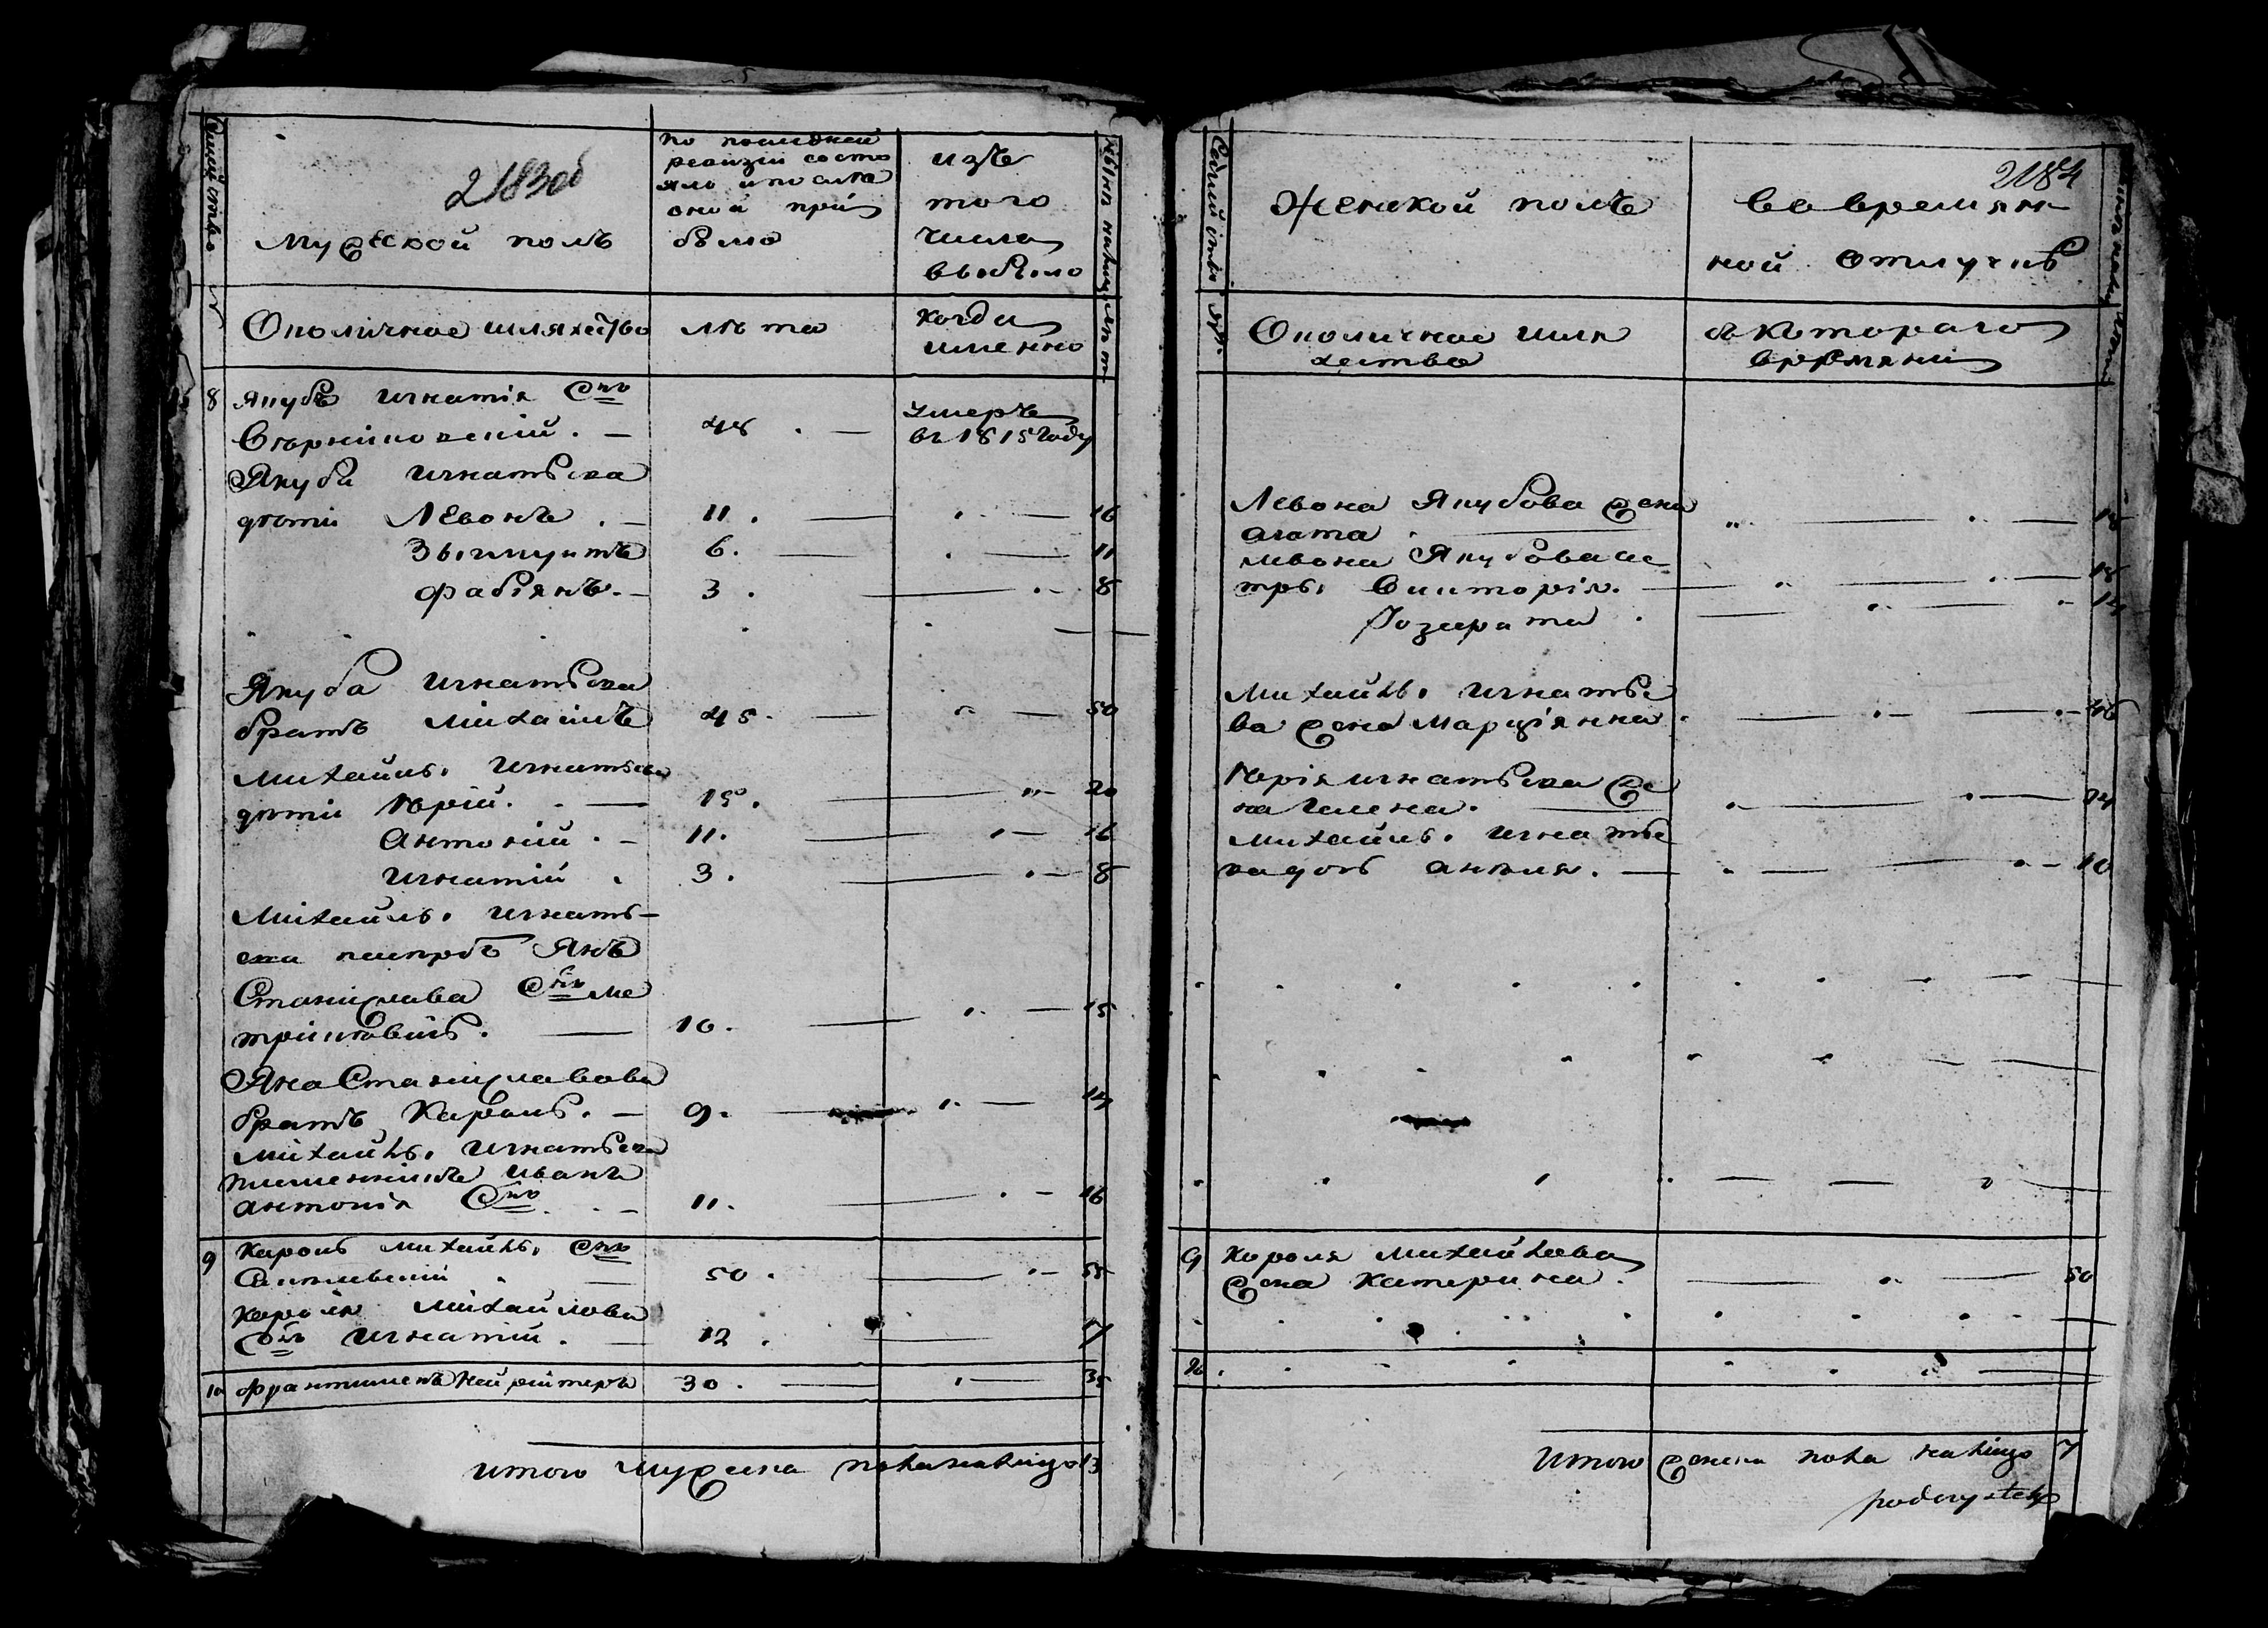 2183об
Семейство
мужеской полъ
по последней
ревизіи состо
яло и после
оной при
было
изъ
того
числа
выбыло
ныне налицо
№
Околичное шляхетство
лѣта
когда
именно
лѣта
8
Якубъ Игнатія Снъ
48 . —
умеръ
въ 1815 Году
Якуба Игнатьева
дѣти Левонъ . — 11 . — 16
Зыгмунтъ 6 . — 11
Фабіянъ . — 3 . — 8
Якуба Игнатьева
братъ Михаилъ 45 . — 50
Михайлы Игнатьева
дѣти Юрій . — 15 . — 20
Антоній . — 11 . — 16
Игнатій . 3 . — 8
Михайлы Игнать-
ева Янъ
Станислава Снъ
10 . — 15
Яна Станиславова
братъ Кароль . — 9 . — 14
Михайлы Игнатьева
племенникъ Иванъ
Антонія Снъ . — 11 . — 16
9 Кароль Михайлы Снъ
50 . — 55
Кароля Михайлова
Снъ Игнатій . — 12 . — 17
10 Францишекъ 30 . — 35
Итого мужеска пола налицо 13
2184
Женской полъ
во времян
ной отлучкѣ
№
Околичное шля
хетство
съ котораго
времяни
Левона Якубова жена
Агата
Левона Якубова сес
тры Викторія . — 18
14
Михайлы Игнатье
ва жена Марціянна . —
Юрія Игнатьева же
на Гелена . — 24
Михайлы Игнатье
ва дочь Анеля . — 10
9 Кароля Михайлова
жена Катерина . — 50
10
Итого женска пола налицо 7